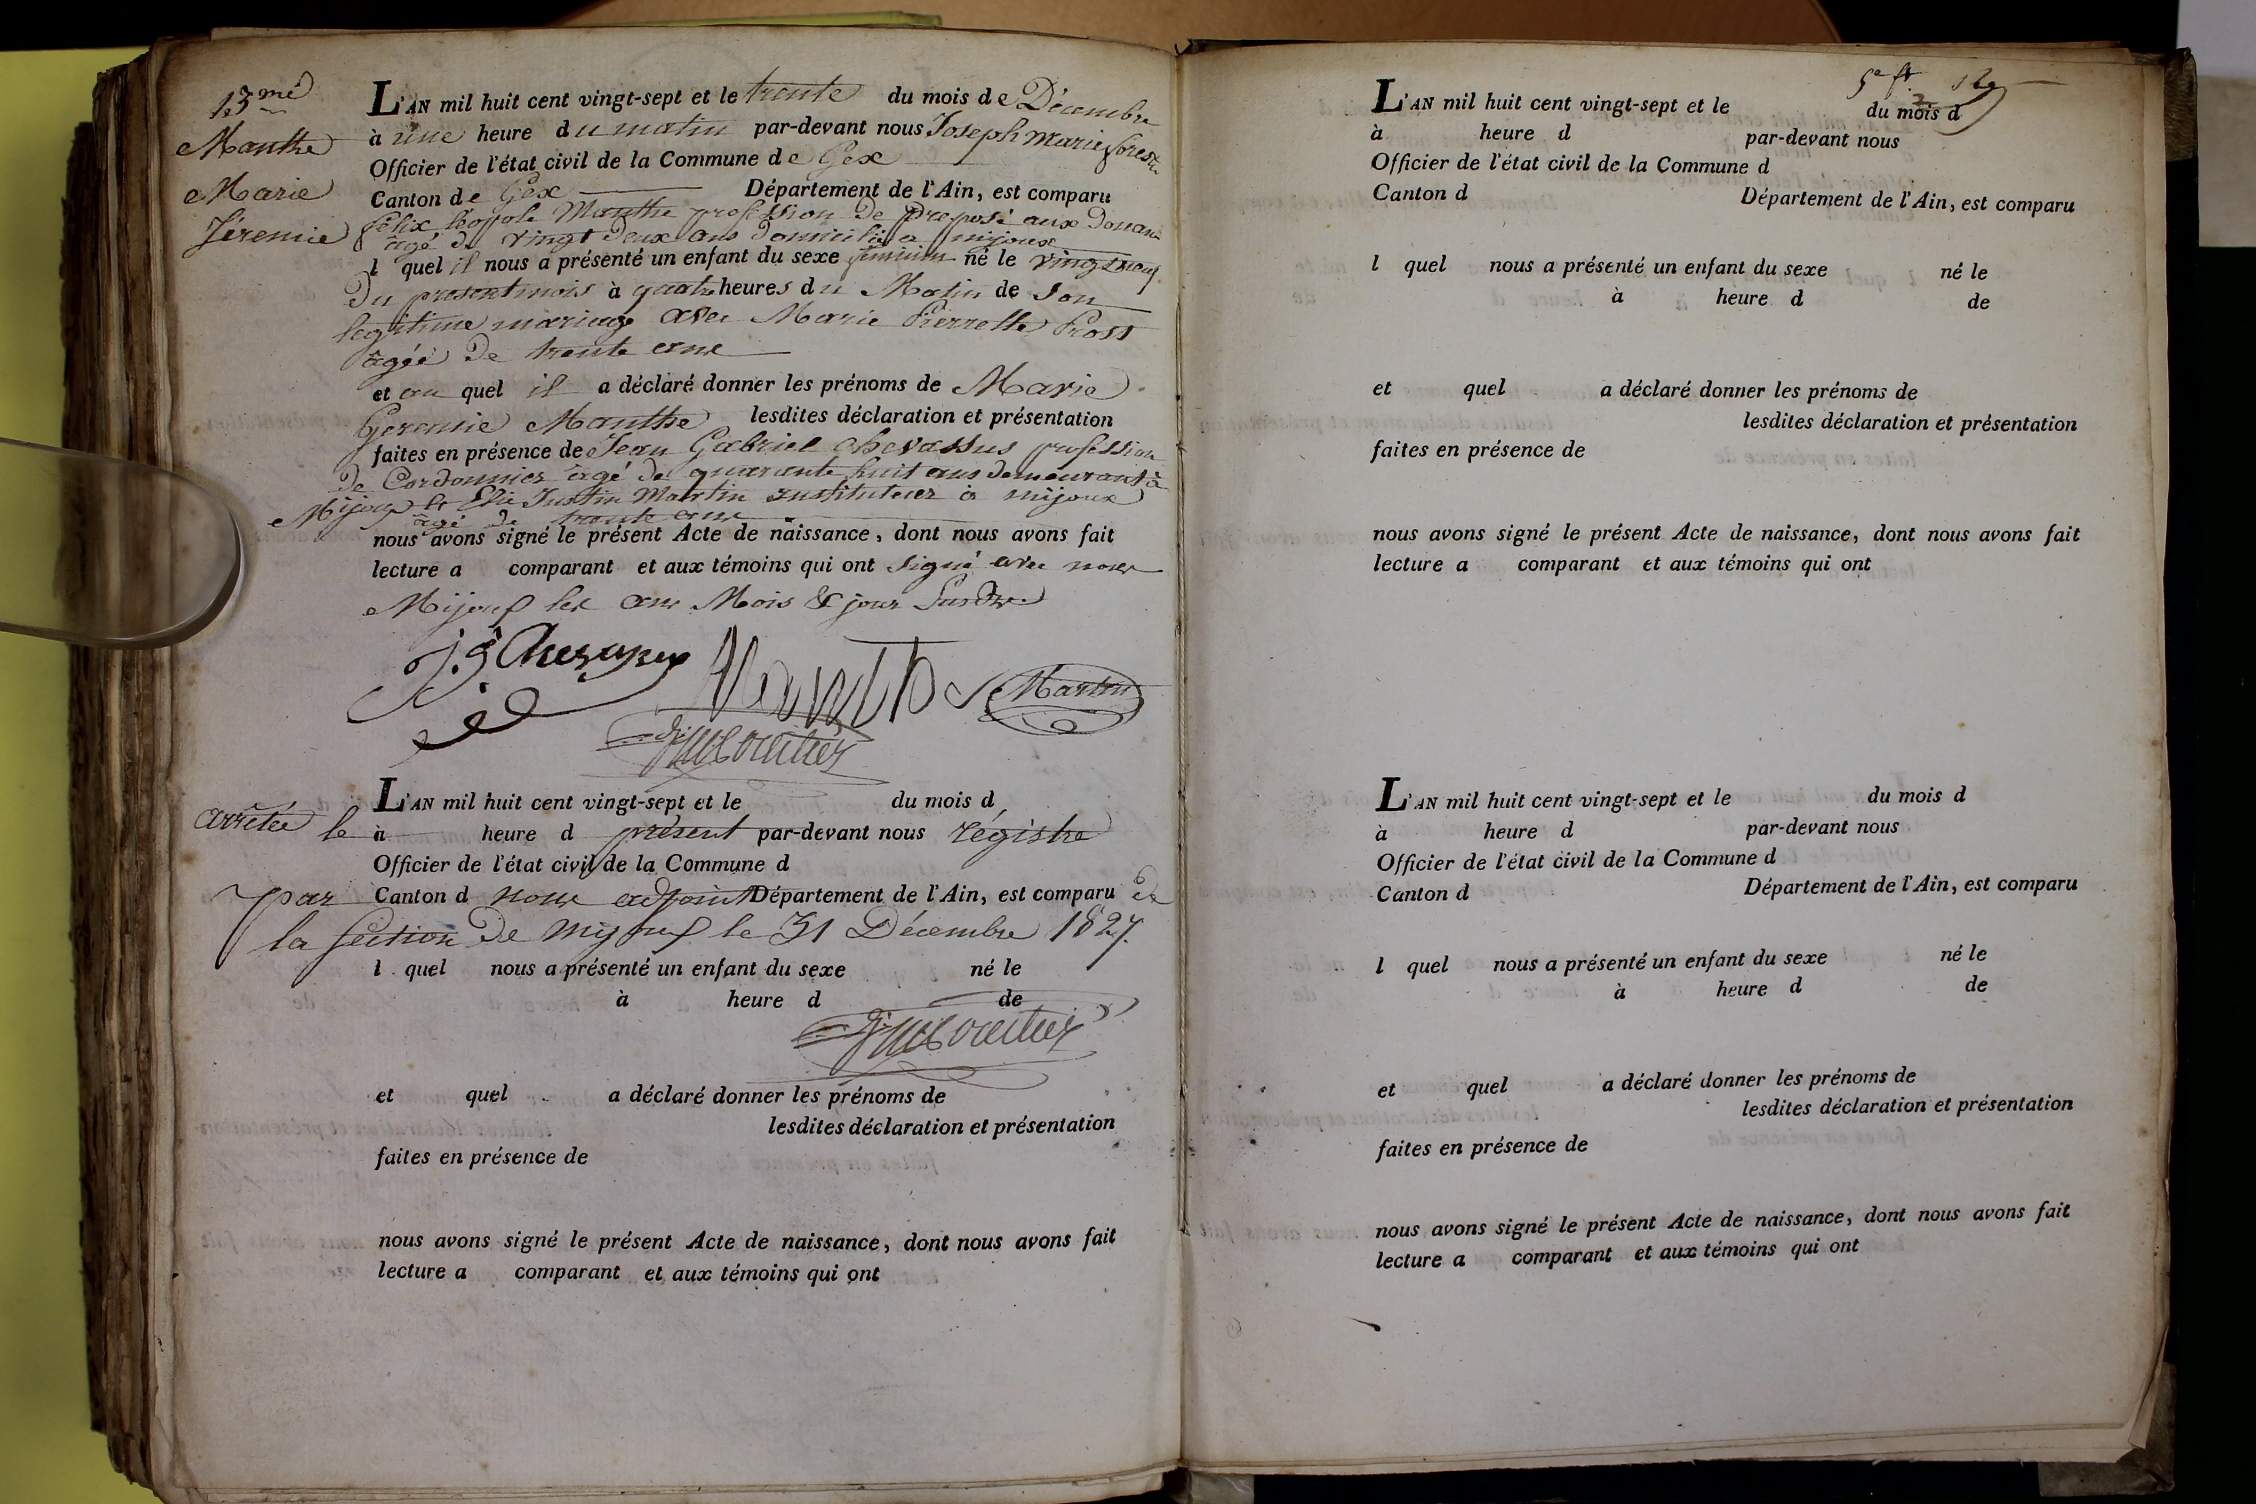 13.me
Manthe
Marie
Jéremie
L'AN mil huit cent vingt-sept et le trente du mois de Décembre
à une heure du matin par-devant nous Joseph Marie
Officier de l'état civil de la Commune de Gex
Canton de Gex Département de l'Ain, est comparu
félix léopole Manthe profession de préposé aux Douan
âgé de vingt deux ans domicilié a mijoux
lequel il nous a présenté un enfant du sexe féminin né le vingt neuf
du present mois à quatre heures du Matin de Son
legitime mariage avec Marie Pierrette Prost
âgée de trente ans
et au quel il a déclaré donner les prénoms de Marie
Geremie Manthe lesdites déclaration et présentation
faites en présence de Jean Gabriel chevassus profession
de Cordonnier âgé de quarante huit ans demeurant à
Mijoux & Elie Justin Martin instituteur à mijoux
âgé de trente ans
nous avons signé le présent Acte de naissance, dont nous avons fait
lecture a comparant et aux témoins qui ont signé avec nous
Mijoux les ans Mois & jour Susdre
J. g Chevassus Manthe Martin
L'AN mil huit cent vingt-sept et le du mois d
arrêtée le à heure d présent par-devant nous régistre
Officier de l'état civil de la Commune d
par Canton d nous adjoint Département de l'Ain, est comparu de
la section de mijoux le 31 Décembre 1827.
l quel nous a présenté un enfant du sexe né le
à heure d de
et quel a déclaré donner les prénoms de
lesdites déclaration et présentation
faites en présence de
nous avons signé le présent Acte de naissance, dont nous avons fait
lecture a comparant et aux témoins qui ont
L'AN mil huit cent vingt-sept et le du mois d
à heure d par-devant nous
Officier de l'état civil de la Commune d
Canton d Département de l'Ain, est comparu
l quel nous a présenté un enfant du sexe né le
à heure d de
et quel a déclaré donner les prénoms de
lesdites déclaration et présentation
faites en présence de
nous avons signé le présent Acte de naissance, dont nous avons fait
lecture a comparant et aux témoins qui ont
L'AN mil huit cent vingt-sept et le du mois d
à heure d par-devant nous
Officier de l'état civil de la Commune d
Canton d Département de l'Ain, est comparu
l quel nous a présenté un enfant du sexe né le
à heure d de
et quel a déclaré donner les prénoms de
lesdites déclaration et présentation
faites en présence de
nous avons signé le présent Acte de naissance, dont nous avons fait
lecture a comparant et aux témoins qui ont